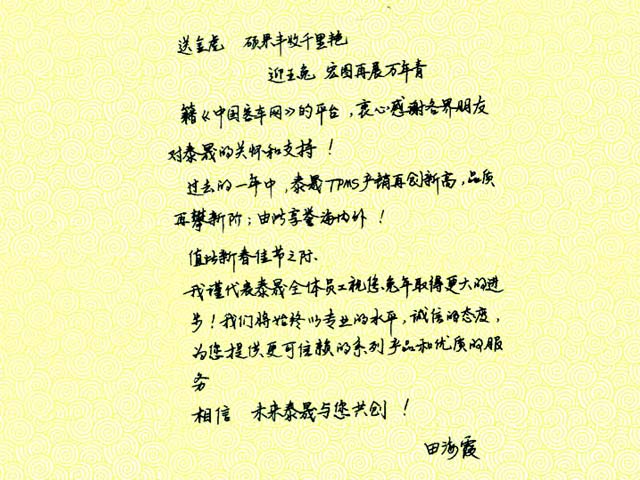 送金虎 硕果丰收千里艳
迎玉兔 宏图再展万年青
籍《中国客车网》的平台,衷心感谢各界朋友
对泰晟的关怀和支持!
过去的一年中,泰晟TPMS产销再创新高,品质
再攀新阶;由此享誉海内外!
值此新春佳节之际.
我谨代表泰晟全体员工祝您兔年取得更大的进
步!我们将始终以专业的水平,诚信的态度,
为您提供更可信赖的系列产品和优质的服
务
相信 未来泰晟与您共创!
田海霞